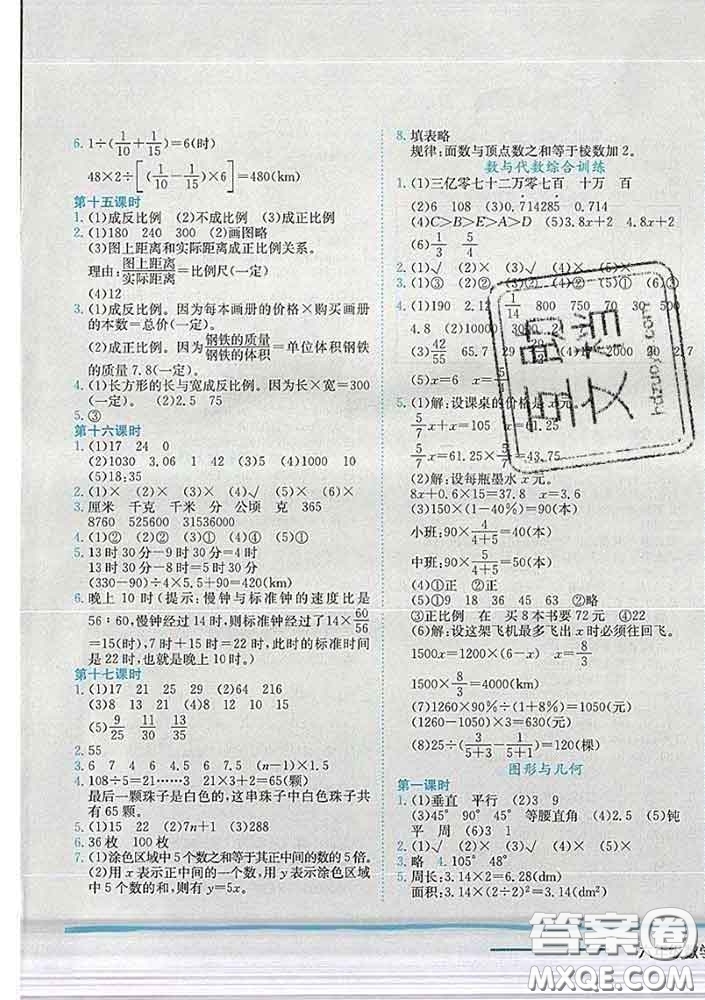 6. 1÷(1/10+1/15)=6(时)
48×2÷[48×(1/10-1/15)×6]=480(km)
第十五课时
1. (1)成反比例 (2)不成比例 (3)成正比例
2. (1)180 240 300 (2)画图略
(3)图上距离和实际距离成正比例关系。
理由:图上距离/实际距离=比例尺(一定)
(4)12
3. (1)成反比例。因为每本画册的价格×购买画册
的本数=总价(一定)。
(2)成正比例。因为钢铁的质量/钢铁的体积=单位体积钢铁
的质量7.8(一定)。
4. (1)长方形的长与宽成反比例。因为长×宽=300
(一定)。 (2)2.5 75
5. ③
第十六课时
1. (1)17 24 0
(2)1030 3.06 1 42 (3)50 (4)1000 10
(5)18:35
2. (1)× (2)× (3)× (4)√ (5)× (6)×
3. 厘米 千克 千米 分 公顷 克 365
8760 525600 31536000
4. (1)② (2)② (3)① (4)④ (5)①
5. 13时30分-9时=4时30分
13时30分-8时=5时30分
(330-90)÷4×5.5+90=420(km)
6. 晚上10时(提示:慢钟与标准钟的速度比是
56:60,慢钟经过14时,则标准钟经过了14×60/56
=15(时),7时+15时=22时,此时的标准时间
是22时,也就是晚上10时。)
第十七课时
1. (1)17 21 25 29 (2)64 216
(3)8 13 21 (4)8 9 12 10 15
(5)9/25 11/30 13/35
2. 55
3. 6 7 4 6 4.5 6 7.5 (n-1)×1.5
4. 108÷5=21……3 21×3+2=65(颗)
最后一颗珠子是白色的,这串珠子中白色珠子共
有65颗。
5. (1)15 22 (2)7n+1 (3)288
6. 36枚 100枚
7. (1)涂色区域中5个数之和等于其正中间的数的5倍。
(2)用x表示正中间的一个数,用y表示涂色区域
中5个数的和,则有y=5x。
8. 填表略
规律:面数与顶点数之和等于棱数加2。
数与代数综合训练
1. (1)三亿零七十二万零七百 十万 百
(2)6 108 (3)0.7̇14285̇ 0.7̇14̇
(4)C>B>E>A>D (5)3.8x+2 4.8x+2
(6)1/3 5/4
2. (1)√ (2)× (3)√ (4)× (5)√
3. (1)③ (2)③ (3)③ (4)② (5)① (6)③
4. (1)190 2.12 1/14 800 750 30
4.8 (2)10000 3000
(3)42/55
(5)x=6
5. (1)解:设课桌的价格是x
5/7x+x=105 x=61.25
5/7x=61.25×5/7=43.75
(2)解:设每瓶墨水x元。
8x+0.6×15=37.8 x=3.6
(3)150×(1-40%)=90(本)
小班:90×4/(4+5)=40(本)
中班:90×5/(4+5)=50(本)
(4)①正 ②正
(5)①9 18 36 45 63 ②略
③正比例 在 买8本书要72元 ④22
(6)解:设这架飞机最多飞出x时必须往回飞。
1500x=1200×(6-x) x=8/3
1500×8/3=4000(km)
(7)1260×90%÷(1+8%)=1050(元)
(1260-1050)×3=630(元)
(8)25÷(3/(5+3)-1/(5+1))=120(棵)
图形与几何
第一课时
1. (1)垂直 平行 (2)3 9
(3)45° 90° 45° 等腰直角 (4)2.5 (5)钝
平 周 (6)3 1
2. (1)√ (2)× (3)× (4)× (5)√
3. 略 4. 105° 48°
5. 周长:3.14×2=6.28(dm)
面积:3.14×(2÷2)²=3.14(dm²)
hdzuoye.com
答案圈
MXQE.COM